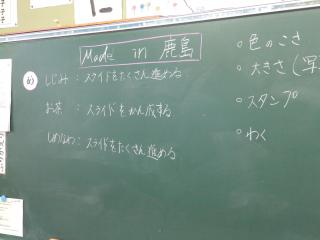 Made in 鹿島
め
しじみ：スライドをたくさん進める
お茶：スライドをかん成する
しめなわ：スライドをたくさん進める
○色のこさ
○大きさ(写
○スタンプ
○わく